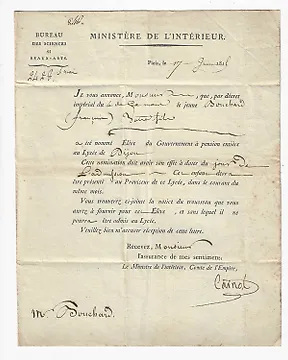 BUREAU
DES SCIENCES
ET
BEAUX-ARTS
MINISTÈRE DE L'INTÉRIEUR.
Paris, le 17 Juin 1815
Je vous annonce, Monsieur que, par décret
impérial du le jeune Bouchard
(françois) Votre fils
a été nommé Élève du Gouvernement à pension entière
au Lycée de Dijon
Cette nomination doit avoir son effet à dater du jour de
l'admission Cet enfant devra
être présenté au Proviseur de ce Lycée, dans le courant du
même mois.
Vous trouverez ci-joint la notice du trousseau que vous
aurez à fournir pour cet Élève, et sans lequel il ne
pourra être admis au Lycée.
Veuillez bien m'accuser réception de cette lettre.
Recevez, Monsieur
l'assurance de mes sentimens.
Le Ministre de l'intérieur, Comte de l'Empire,
Carnot
Mr Bouchard.